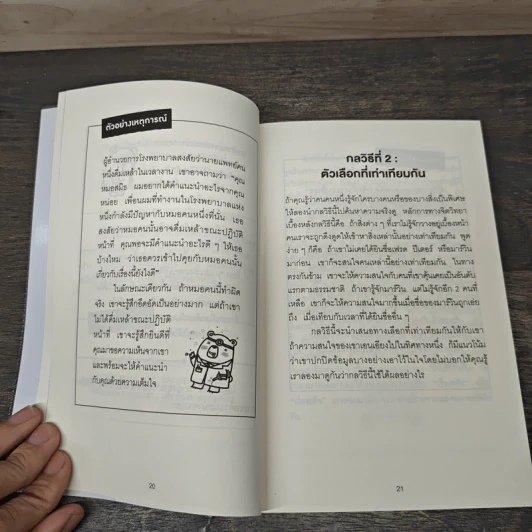 ตัวอย่างเหตุการณ์
ผู้อำนวยการโรงพยาบาลสงสัยว่านายแพทย์คน
หนึ่งดื่มเหล้าในเวลางาน เขาอาจถามว่า "คุณ
หมอสมิธ ผมอยากได้คำแนะนำอะไรจากคุณ
หน่อย เพื่อนผมที่ทำงานในโรงพยาบาลแห่ง
หนึ่งกำลังมีปัญหากับหมอคนหนึ่งที่นั่น เธอ
สงสัยว่าหมอคนนั้นอาจดื่มเหล้าขณะปฏิบัติ
หน้าที่ คุณพอจะมีคำแนะนำอะไรดี ๆ ให้เธอ
บ้างไหม ว่าเธอควรเข้าไปคุยกับหมอคนนั้น
เกี่ยวกับเรื่องนี้ยังไงดี"
ในลักษณะเดียวกัน ถ้าหมอคนนี้ทำผิด
จริง เขาจะรู้สึกอึดอัดเป็นอย่างมาก แต่ถ้าเขา
ไม่ได้ดื่มเหล้าขณะปฏิบัติ
หน้าที่ เขาจะรู้สึกยินดีที่
คุณมาขอความเห็นจากเขา
และพร้อมจะให้คำแนะนำ
กับคุณด้วยความเต็มใจ
20
กลวิธีที่ 2 :
ตัวเลือกที่เท่าเทียมกัน
ถ้าคุณรู้ว่าคนคนหนึ่งรู้จักใครบางคนหรือของบางสิ่งเป็นพิเศษ
ให้ลองนำกลวิธีนี้ไปค้นหาความจริงดู หลักการทางจิตวิทยา
เบื้องหลังกลวิธีนี้คือ ถ้าสิ่งต่าง ๆ ที่เราไม่รู้จักวางอยู่เบื้องหน้า
คนเราจะถูกดึงดูดให้เข้าหาสิ่งเหล่านั้นอย่างเท่าเทียมกัน พูด
ง่าย ๆ ก็คือ ถ้าเขาไม่เคยได้ยินชื่อเฟรด ปีเตอร์ หรือมาร์วิน
มาก่อน เขาก็จะสนใจคนเหล่านี้อย่างเท่าเทียมกัน ในทาง
ตรงกันข้าม เขาจะให้ความสนใจกับคนที่เขาคุ้นเคยเป็นอันดับ
แรกตามธรรมชาติ ถ้าเขารู้จักมาร์วิน แต่ไม่รู้จักอีก 2 คนที่
เหลือ เขาก็จะให้ความสนใจมากขึ้นเมื่อชื่อของมาร์วินถูกเอ่ย
ถึง เมื่อเทียบกับเวลาที่ได้ยินชื่ออื่น ๆ
กลวิธีนี้จะนำเสนอทางเลือกที่เท่าเทียมกันให้กับเขา
ถ้าความสนใจของเขาเอนเอียงไปในทิศทางหนึ่ง ก็มีแนวโน้ม
ว่าเขาปกปิดข้อมูลบางอย่างเอาไว้ในใจโดยไม่บอกให้คุณรู้
เราลองมาดูกันว่ากลวิธีนี้ใช้ได้ผลอย่างไร
21